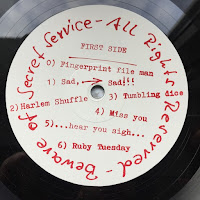 Beware of Secret Service - All Rights Reserved -
FIRST SIDE
0) Fingerprint file man
1) Sad,.—> Sad!!!
2) Harlem Shuffle 3) Tumbling dice
4) Miss you
5)...hear you sigh...
6) Ruby Tuesday